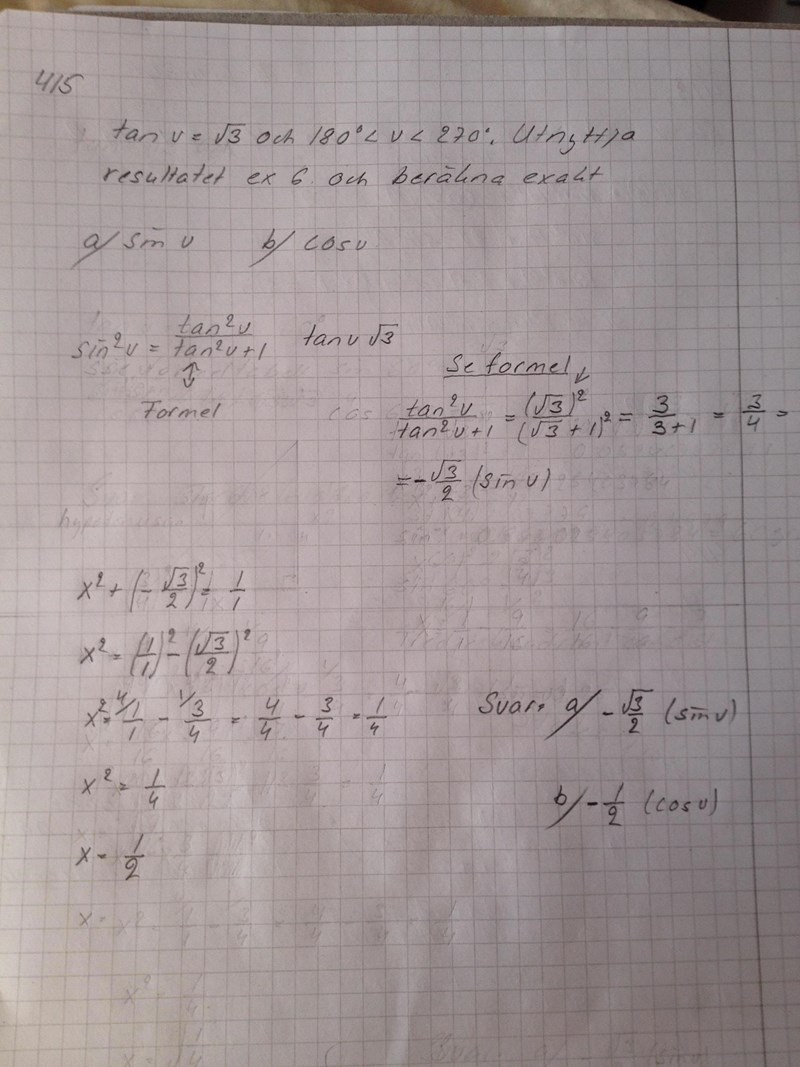 415
tan v = √3 och 180° < v < 270°. Utnyttja
resultatet ex 6 och beräkna exakt
a/ sin v b/ cos v
sin²v = tan²v / tan²v+1 tan v √3
Formel
Se formel
tan²v / tan²v+1 = (√3)² / (√3+1)² = 3 / 3+1 = 3/4 =
= -√3/2 (sin v)
x² + (-√3/2)² = 1/1
x² = (1/1)² - (√3/2)²
x² = 4/1/1 - 1/3/4 = 4/4 - 3/4 = 1/4
x² = 1/4
x = 1/2
Svar: a/ -√3/2 (sin v)
b/ -1/2 (cos v)